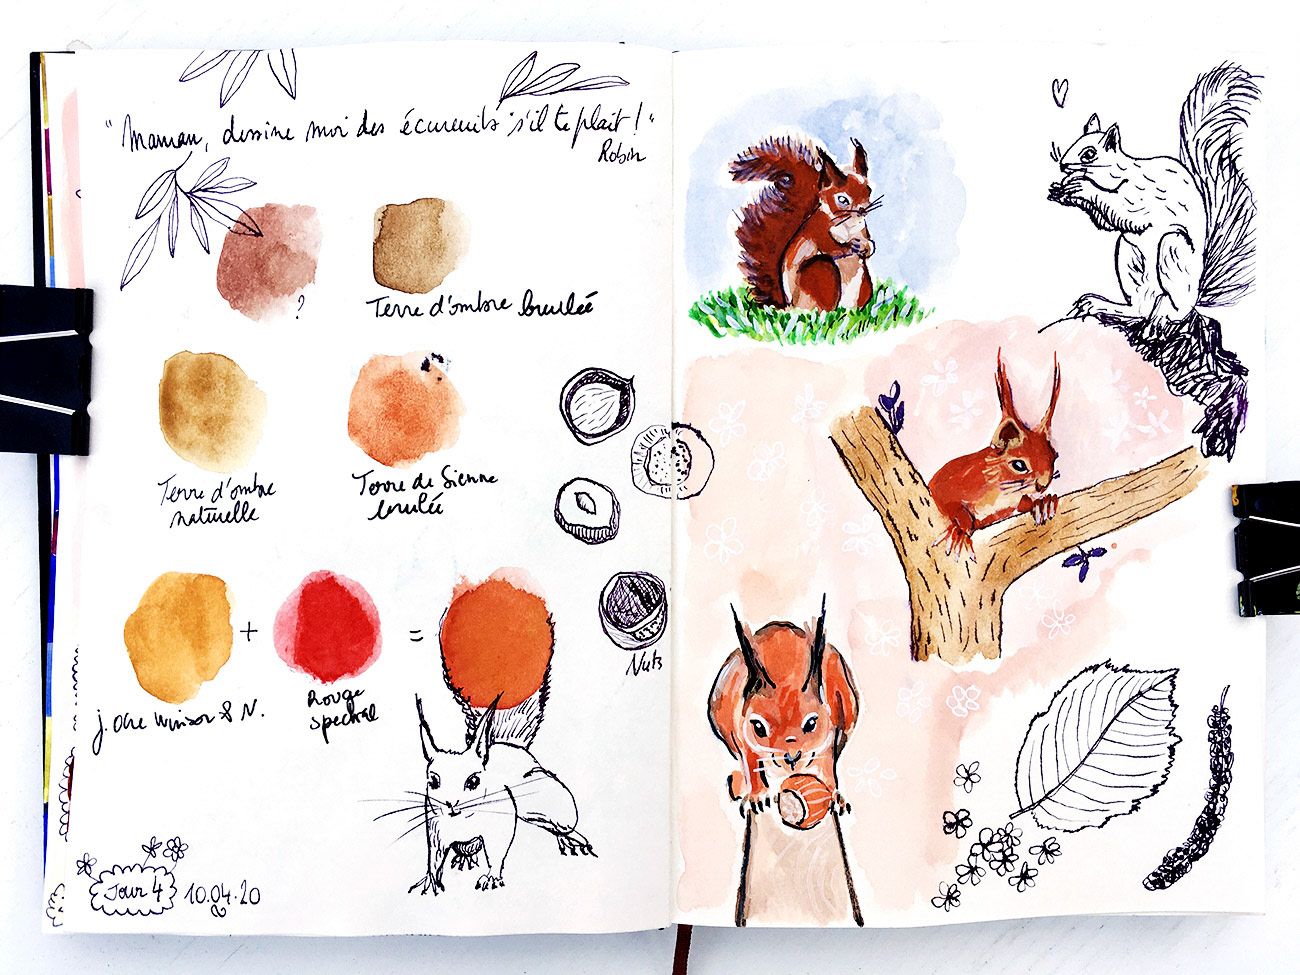 "Maman, dessine moi des écureuils s'il te plait!"
Robin
?
Terre d'ombre brulée
Terre d'ombre
naturelle
Terre de Sienne
brulée
+
=
j. Ocre Winsor & N.
Rouge
spectral
Nuts
Jour 4 10.04.20